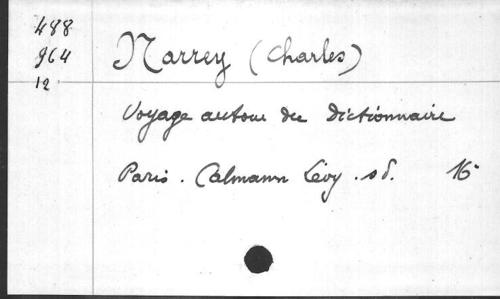 488
964
12
Narrey (Charles)
Voyage autour du Dictionnaire
Paris. Calmann Lévy. s d. 16°